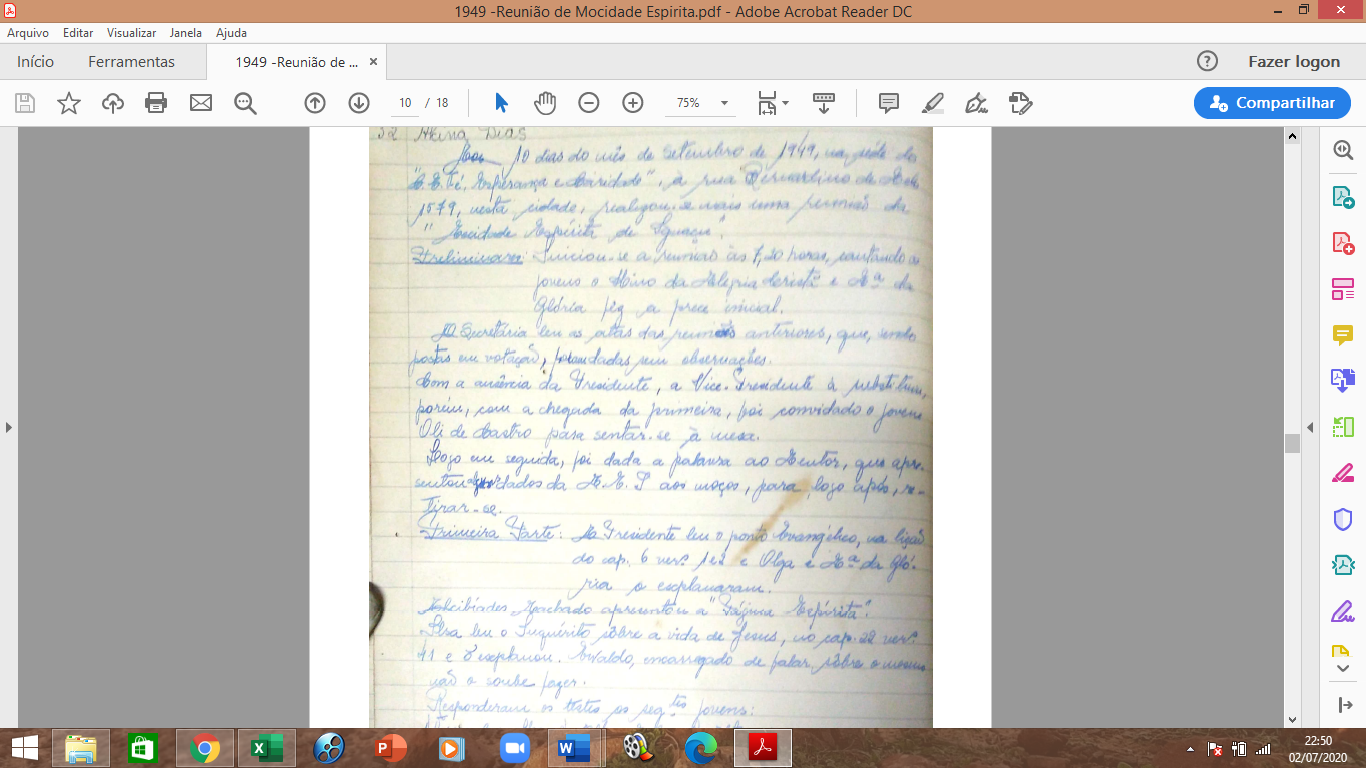 1949 -Reunião de Mocidade Espirita.pdf - Adobe Acrobat Reader DC
Arquivo Editar Visualizar Janela Ajuda
Início Ferramentas 1949 -Reunião de ... × Fazer logon
10 / 18 75% Compartilhar
32 Dias
Aos 10 dias do mês de Setembro de 1949, na séde do
"C. E. Fé, Esperança e Caridade", à rua Bernardino de Melo
1579, nesta cidade, realizou-se mais uma reunião da
"Mocidade Espírita de Iguaçu".
Preliminares: Iniciou-se a reunião às 7,20 horas, cantando os
jovens o Hino da Alegria Cristã e Mª da
Glória fez a prece inicial.
A Secretária leu as atas das reuniões anteriores, que, sendo
postas em votação, dadas sem observações.
Com a ausência da Presidente, a Vice-Presidente a substituiu,
porém, com a chegada da primeira, foi convidado o jovem
Oli de Castro para sentar-se à mesa.
Logo em seguida, foi dada a palavra ao Mentor, que apre-
sentou dados da M. E. I aos moços, para, logo após, re-
tirar-se.
Primeira Parte: A Presidente leu o ponto Evangélico, na lição
do cap. 6 vers. 1 e 2 e Olga e Mª da Gló-
ria o explanaram.
Alcibíades Machado apresentou a "Página Espírita".
leu o Inquérito sôbre a vida de Jesus, no cap. 22 vers.
41 e explanou. Evaldo, encarregado de falar, sôbre o mesmo
não o soube fazer.
Responderam os testes os seg.tes jovens:
22:50
02/07/2020